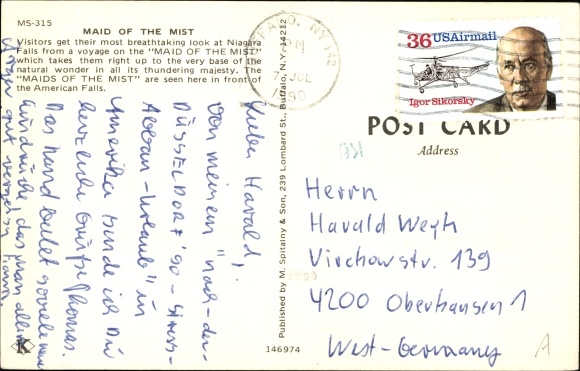 MS-315
MAID OF THE MIST
Visitors get their most breathtaking look at Niagara
Falls from a voyage on the "MAID OF THE MIST"
which takes them right up to the very base of the
natural wonder in all its thundering majesty. The
"MAIDS OF THE MIST" are seen here in front of
the American Falls.
Lieber Harald!
Von meinem "nach-der-
DÜSSELDORF '90-Stress-
Abbau-Urlaub" in
Amerika sende ich Dir
herzliche Grüße Thomas.
Das Land bietet soviele neue
Eindrücke, das man alles
gut vergessen kann.
K
Published by M. Spitalny & Son, 239 Lombard St., Buffalo, N.Y. 14212
146974
BUFFALO, NY 142
PM
JUL
1990
36 USAirmail
Igor Sikorsky
POST CARD
Address
Herrn
Harald Weyh
Virchowstr. 139
4200 Oberhausen 1
West-Germany
A